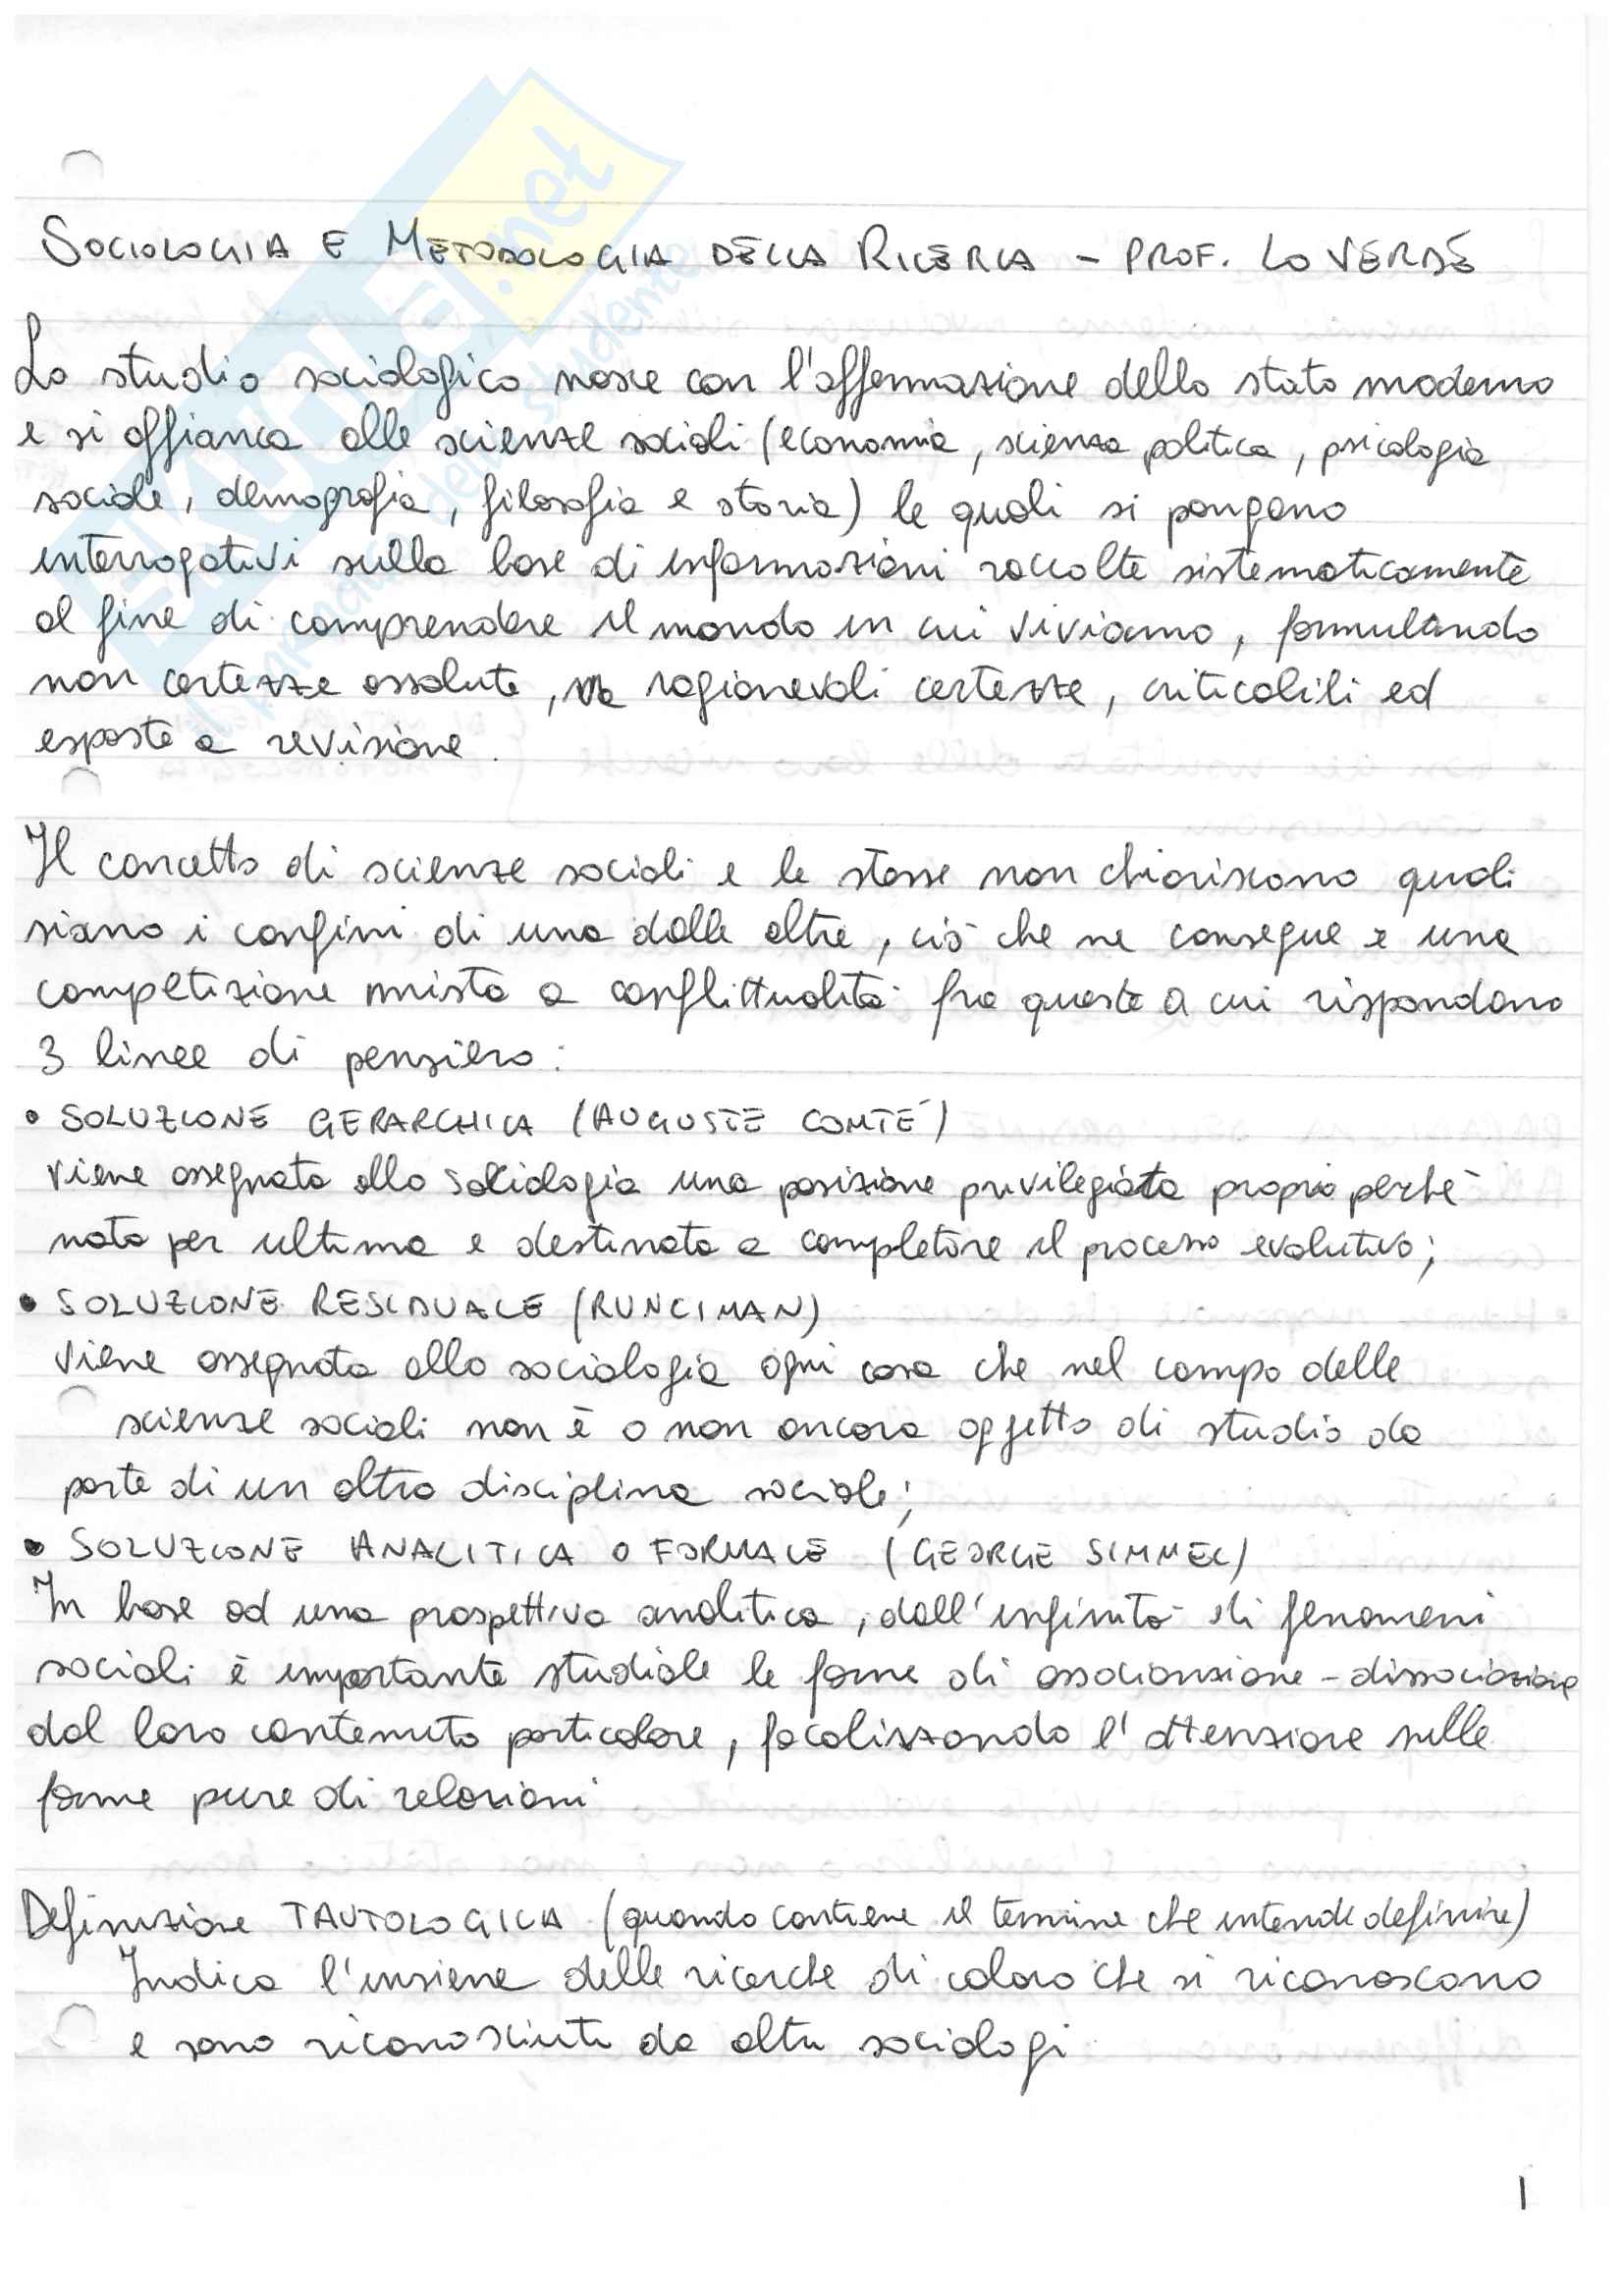 SOCIOLOGIA E METODOLOGIA DELLA RICERCA - PROF. LO VERDE
Lo studio sociologico nasce con l'affermazione dello stato moderno
e si affianca alle scienze sociali (economia, scienza politica, psicologia
sociale, demografia, filosofia e storia) le quali si pongono
interrogativi sulla base di informazioni raccolte sistematicamente
al fine di comprendere il mondo in cui viviamo, formulando
non certezze assolute, ma ragionevoli certezze, criticabili ed
esposte a revisione.
Il concetto di scienze sociali e le stesse non chiariscono quali
siano i confini di una dalle altre, ciò che ne consegue è una
competizione mista a conflittualità fra queste a cui rispondono
3 linee di pensiero:
• SOLUZIONE GERARCHICA (AUGUSTE COMTE)
Viene assegnata alla sociologia una posizione privilegiata proprio perchè
nata per ultima e destinata a completare il processo evolutivo;
• SOLUZIONE RESIDUALE (RUNCIMAN)
Viene assegnata alla sociologia ogni cosa che nel campo delle
scienze sociali non è o non ancora oggetto di studio da
parte di un altra disciplina sociale;
• SOLUZIONE ANALITICA O FORMALE (GEORGE SIMMEL)
In base ad una prospettiva analitica, dall'infinità di fenomeni
sociali è importante le forme di - dissociazione
dal loro contenuto particolare, focalizzando l'attenzione sulle
forme pure di relazioni
Definizione TAUTOLOGICA (quando contiene il termine che intende definire)
Indica l'insieme delle ricerche di coloro che si riconoscono
e sono riconosciuti da altri sociologi
1
.net